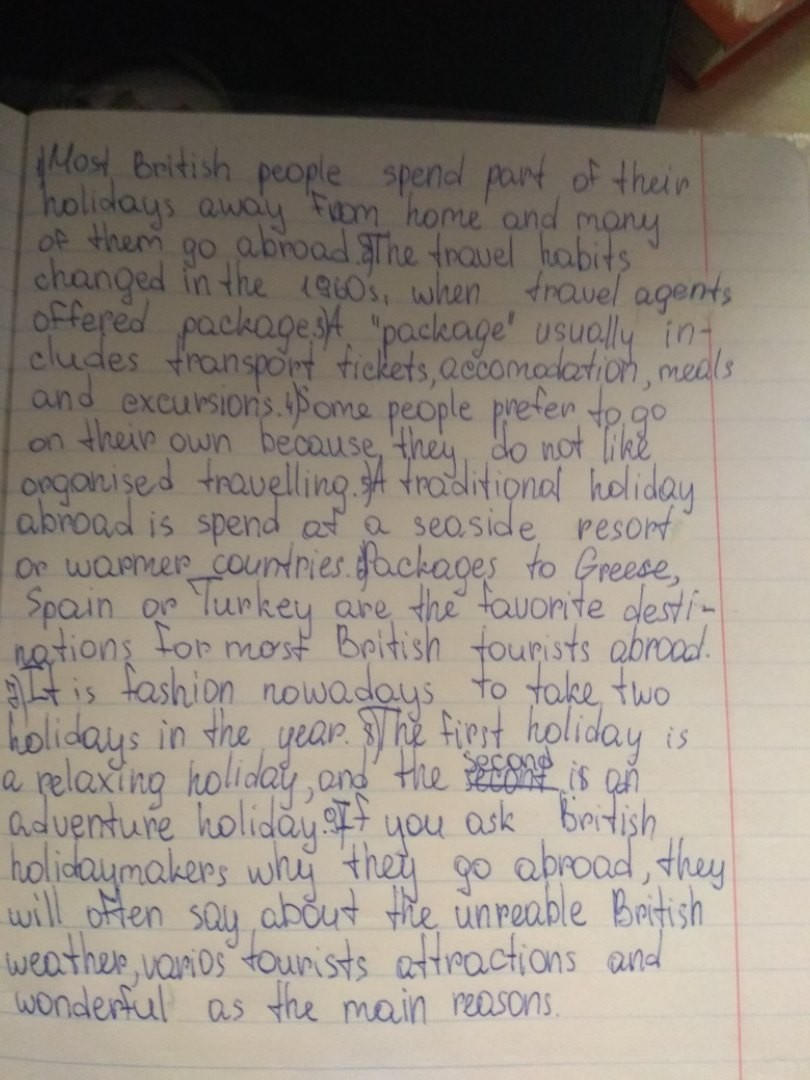 1)Most British people spend part of their
holidays away from home and many
of them go abroad.2)The travel habits
changed in the 1960s, when travel agents
offered packages.3)A "package" usually in-
cludes transport tickets, accomodation, meals
and excursions.4)Some people prefer to go
on their own because they do not like
organised travelling.5)A traditional holiday
abroad is spend at a seaside resort
or warmer countries. 6)Packages to Greese,
Spain or Turkey are the favorite desti-
nations for most British tourists abroad.
7)It is fashion nowadays to take two
holidays in the year. 8)The first holiday is
a relaxing holiday, and the second is an
adventure holiday.9)If you ask British
holidaymakers why they go abroad, they
will often say about the unreable British
weather, varios tourists attractions and
wonderful as the main reasons.